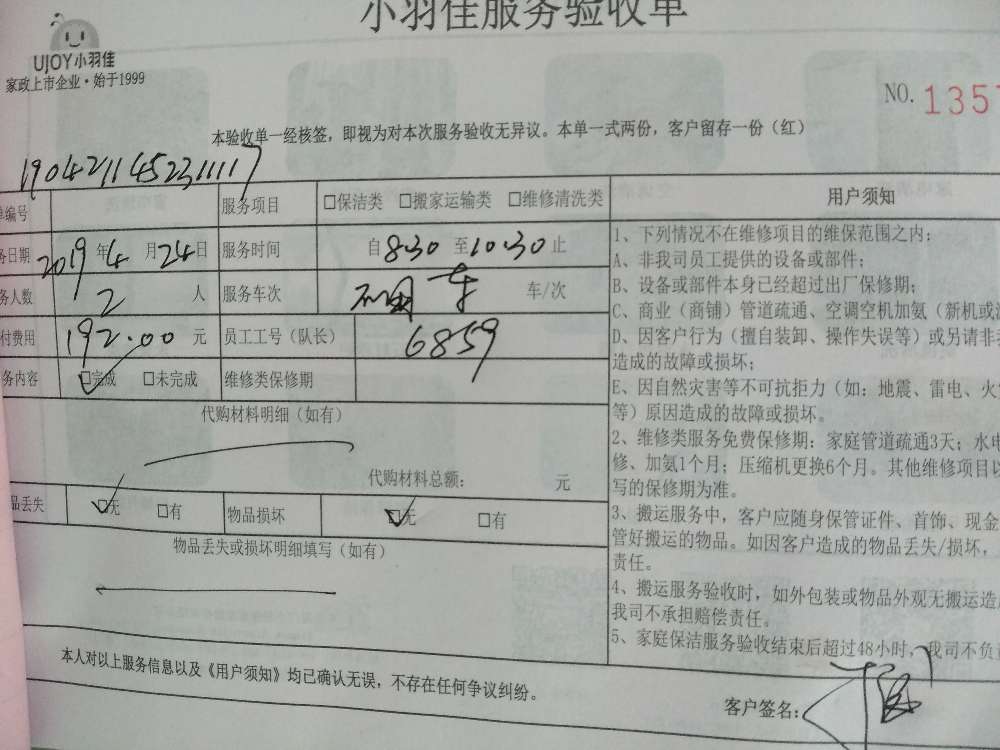 小羽佳服务验收单
UJOY小羽佳
家政上市企业·始于1999
NO. 1357
本验收单一经核签，即视为对本次服务验收无异议。本单一式两份，客户留存一份（红）
190421145231117
单编号 服务项目 □保洁类 □搬家运输类 □维修清洗类 用户须知
务日期 2019年4月24日 服务时间 自8:30至10:30止
务人数 2 人 服务车次 车/次
付费用 192.00 元 员工工号（队长） 6859
务内容 □完成 □未完成 维修类保修期
代购材料明细（如有）
代购材料总额： 元
品丢失 □无 □有 物品损坏 □无 □有
物品丢失或损坏明细填写（如有）
1、下列情况不在维修项目的维保范围之内：
A、非我司员工提供的设备或部件；
B、设备或部件本身已经超过出厂保修期；
C、商业（商铺）管道疏通、空调空机加氨（新机或
D、因客户行为（擅自装卸、操作失误等）或另请非
造成的故障或损坏；
E、因自然灾害等不可抗拒力（如：地震、雷电、火
等）原因造成的故障或损坏。
2、维修类服务免费保修期：家庭管道疏通3天；水电
修、加氨1个月；压缩机更换6个月。其他维修项目以
写的保修期为准。
3、搬运服务中，客户应随身保管证件、首饰、现金
管好搬运的物品。如因客户造成的物品丢失/损坏，
责任。
4、搬运服务验收时，如外包装或物品外观无搬运造
我司不承担赔偿责任。
5、家庭保洁服务验收结束后超过48小时，我司不负
本人对以上服务信息以及《用户须知》均已确认无误，不存在任何争议纠纷。
客户签名：